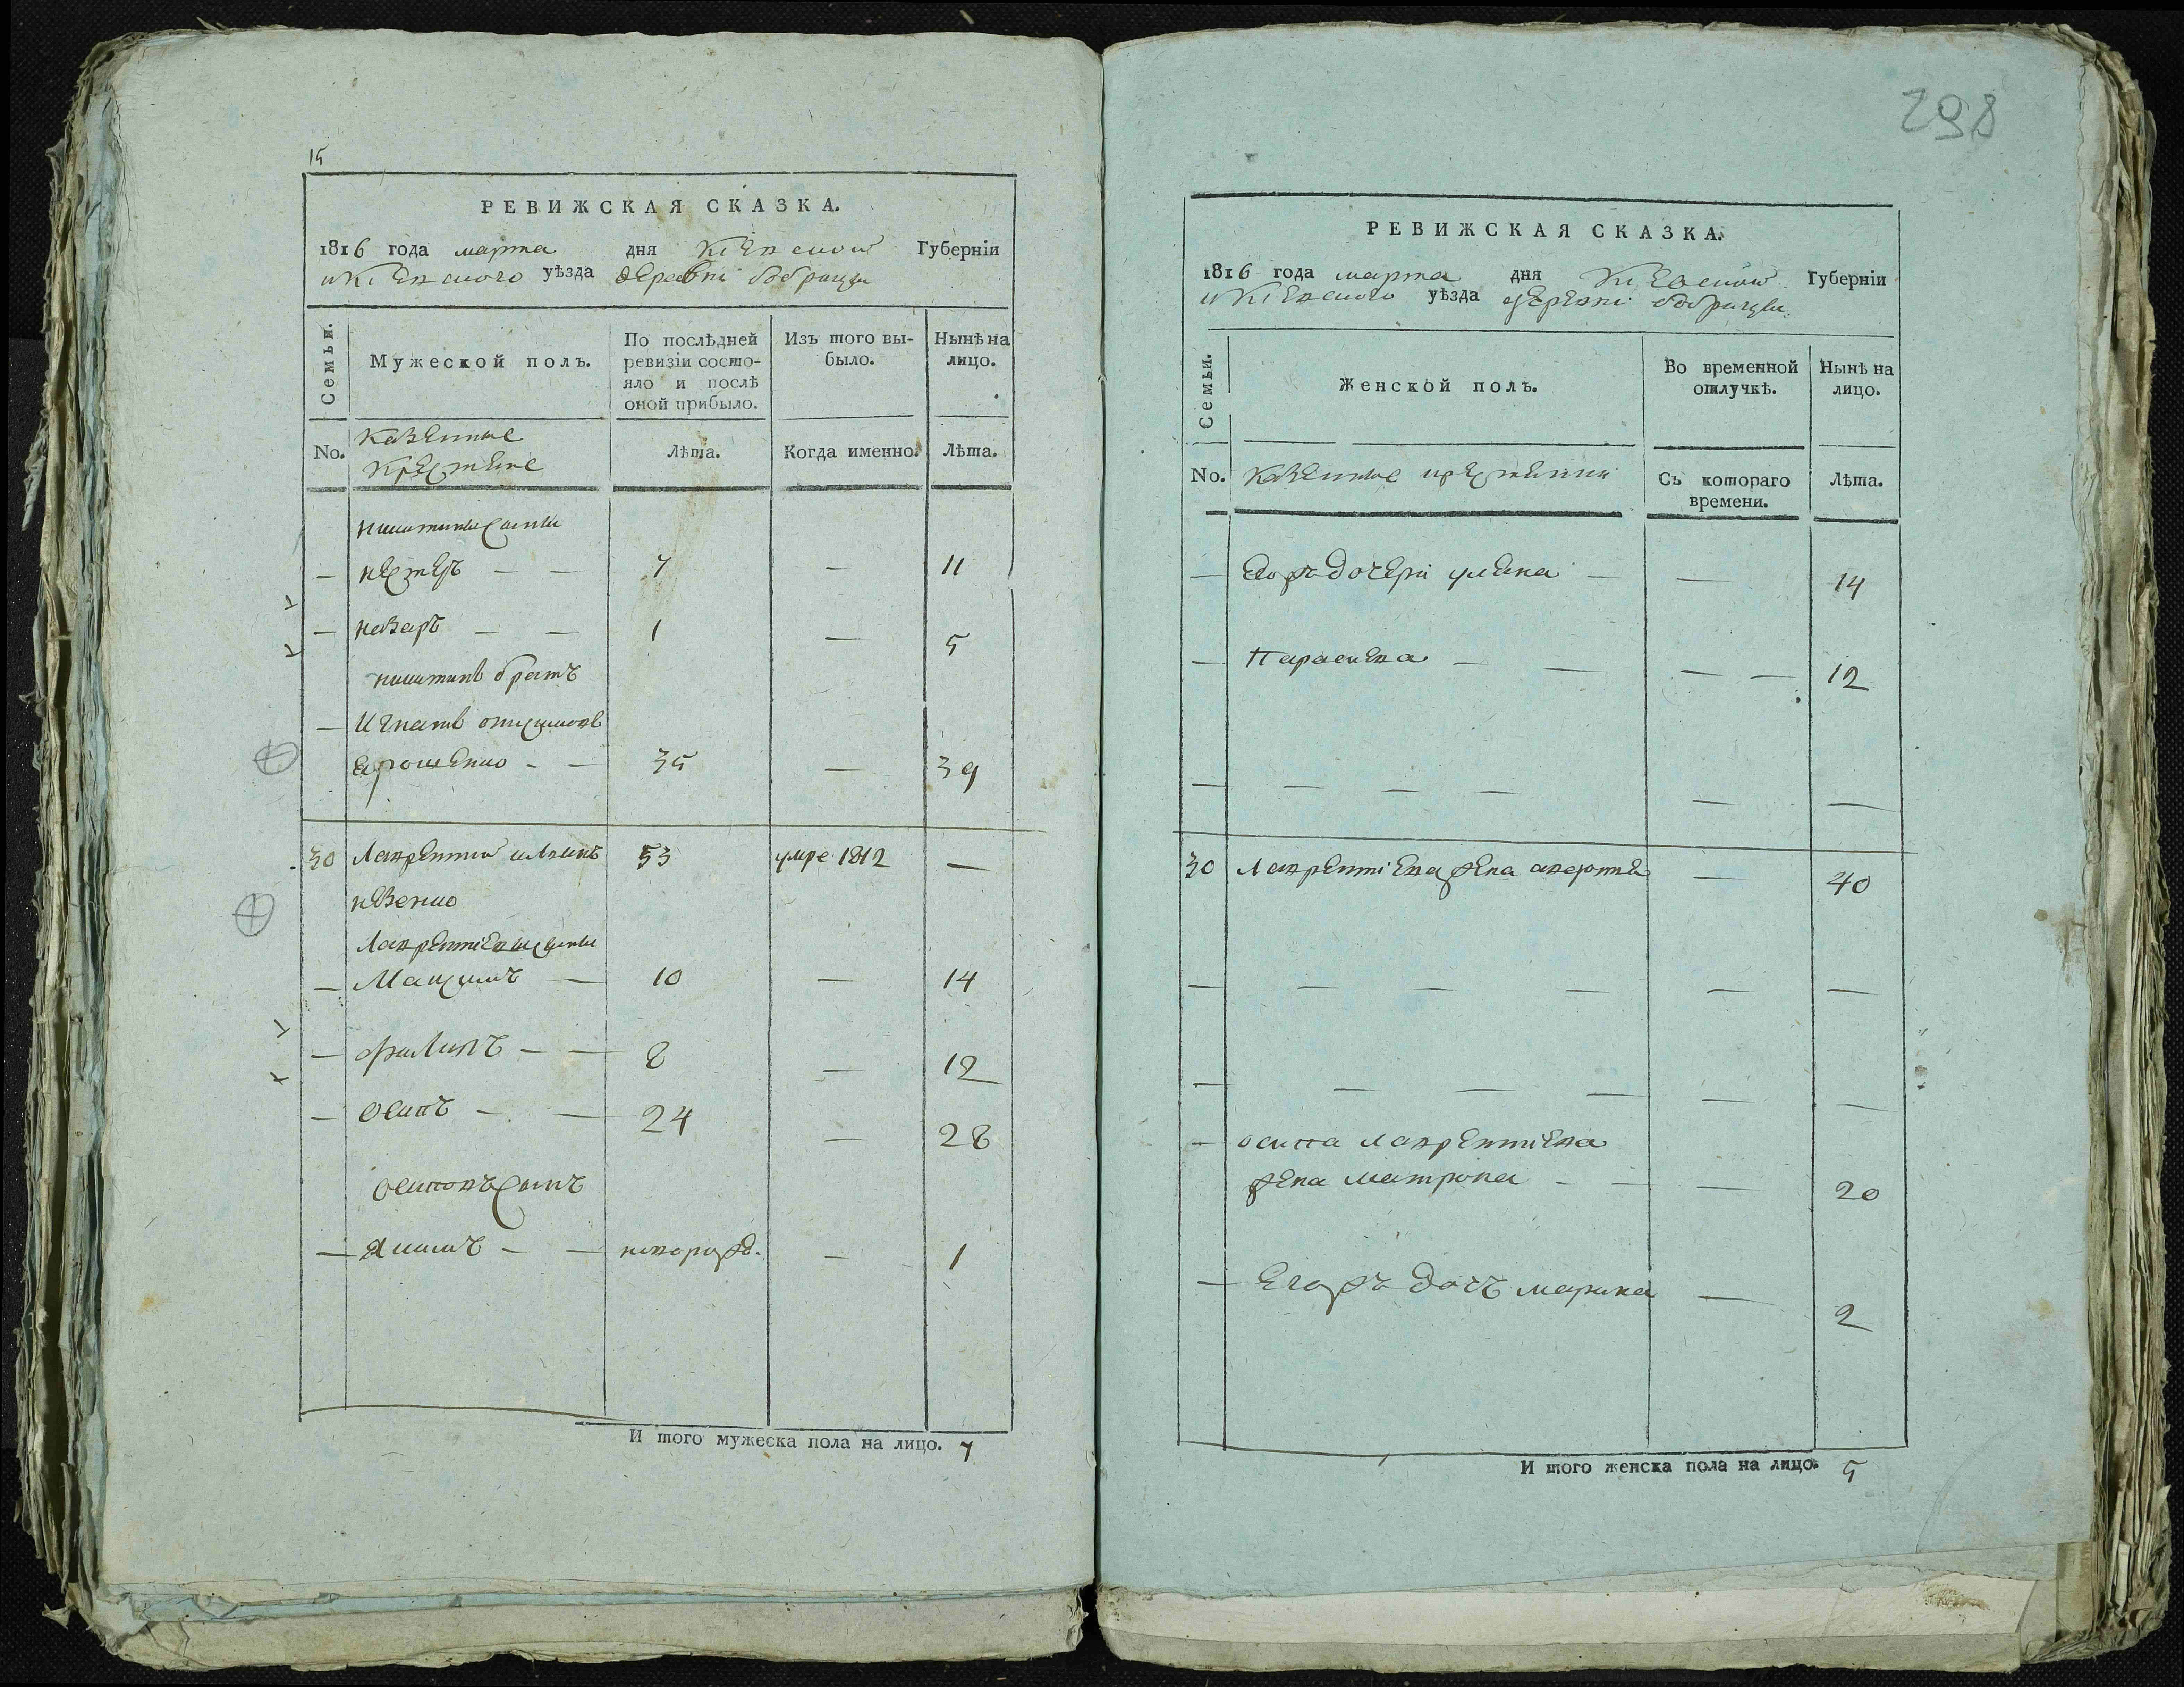 15
РЕВИЖСКАЯ СКАЗКА.
1816 года марта дня Кіевской Губерніи
и Кіевского уѣзда деревни бобрици
Семьи.
Мужеской полъ.
По послѣдней ревизіи состояло и послѣ оной прибыло.
Изъ того выбыло.
Нынѣ на лицо.
No.
Казенные
Крестяне
Лѣта.
Когда именно.
Лѣта.
никитины сыны
— нестеръ — — 7 — 11
— назаръ — — 1 — 5
никитинъ братъ
— Игнатъ
ярошенко — — 35 — 39
30 Лаврентий 53 умре 1812 —
Лаврентіевы сыны
— Максимъ — 10 — 14
— филипъ — — 8 — 12
— осипъ — — 24 — 28
осиповъ сынъ
— якимъ — — новорожд. — 1
И того мужеска пола на лицо. 7
298
РЕВИЖСКАЯ СКАЗКА.
1816 года марта дня Кіевской Губерніи
и Кіевского уѣзда деревни бобрици
Семьи.
Женской полъ.
Во временной отлучкѣ.
Нынѣ на лицо.
No.
Казенные крестянки
Съ котораго времени.
Лѣта.
— дочери уляна — — 14
— Параскева — — — — 12
— — — — — —
30 Лаврентіева жена — 40
— — — — — —
— — — — — —
— осипа Лаврентиева
жена матрона — — — 20
— Егожъ дочъ марина — 2
И того женска пола на лицо. 5